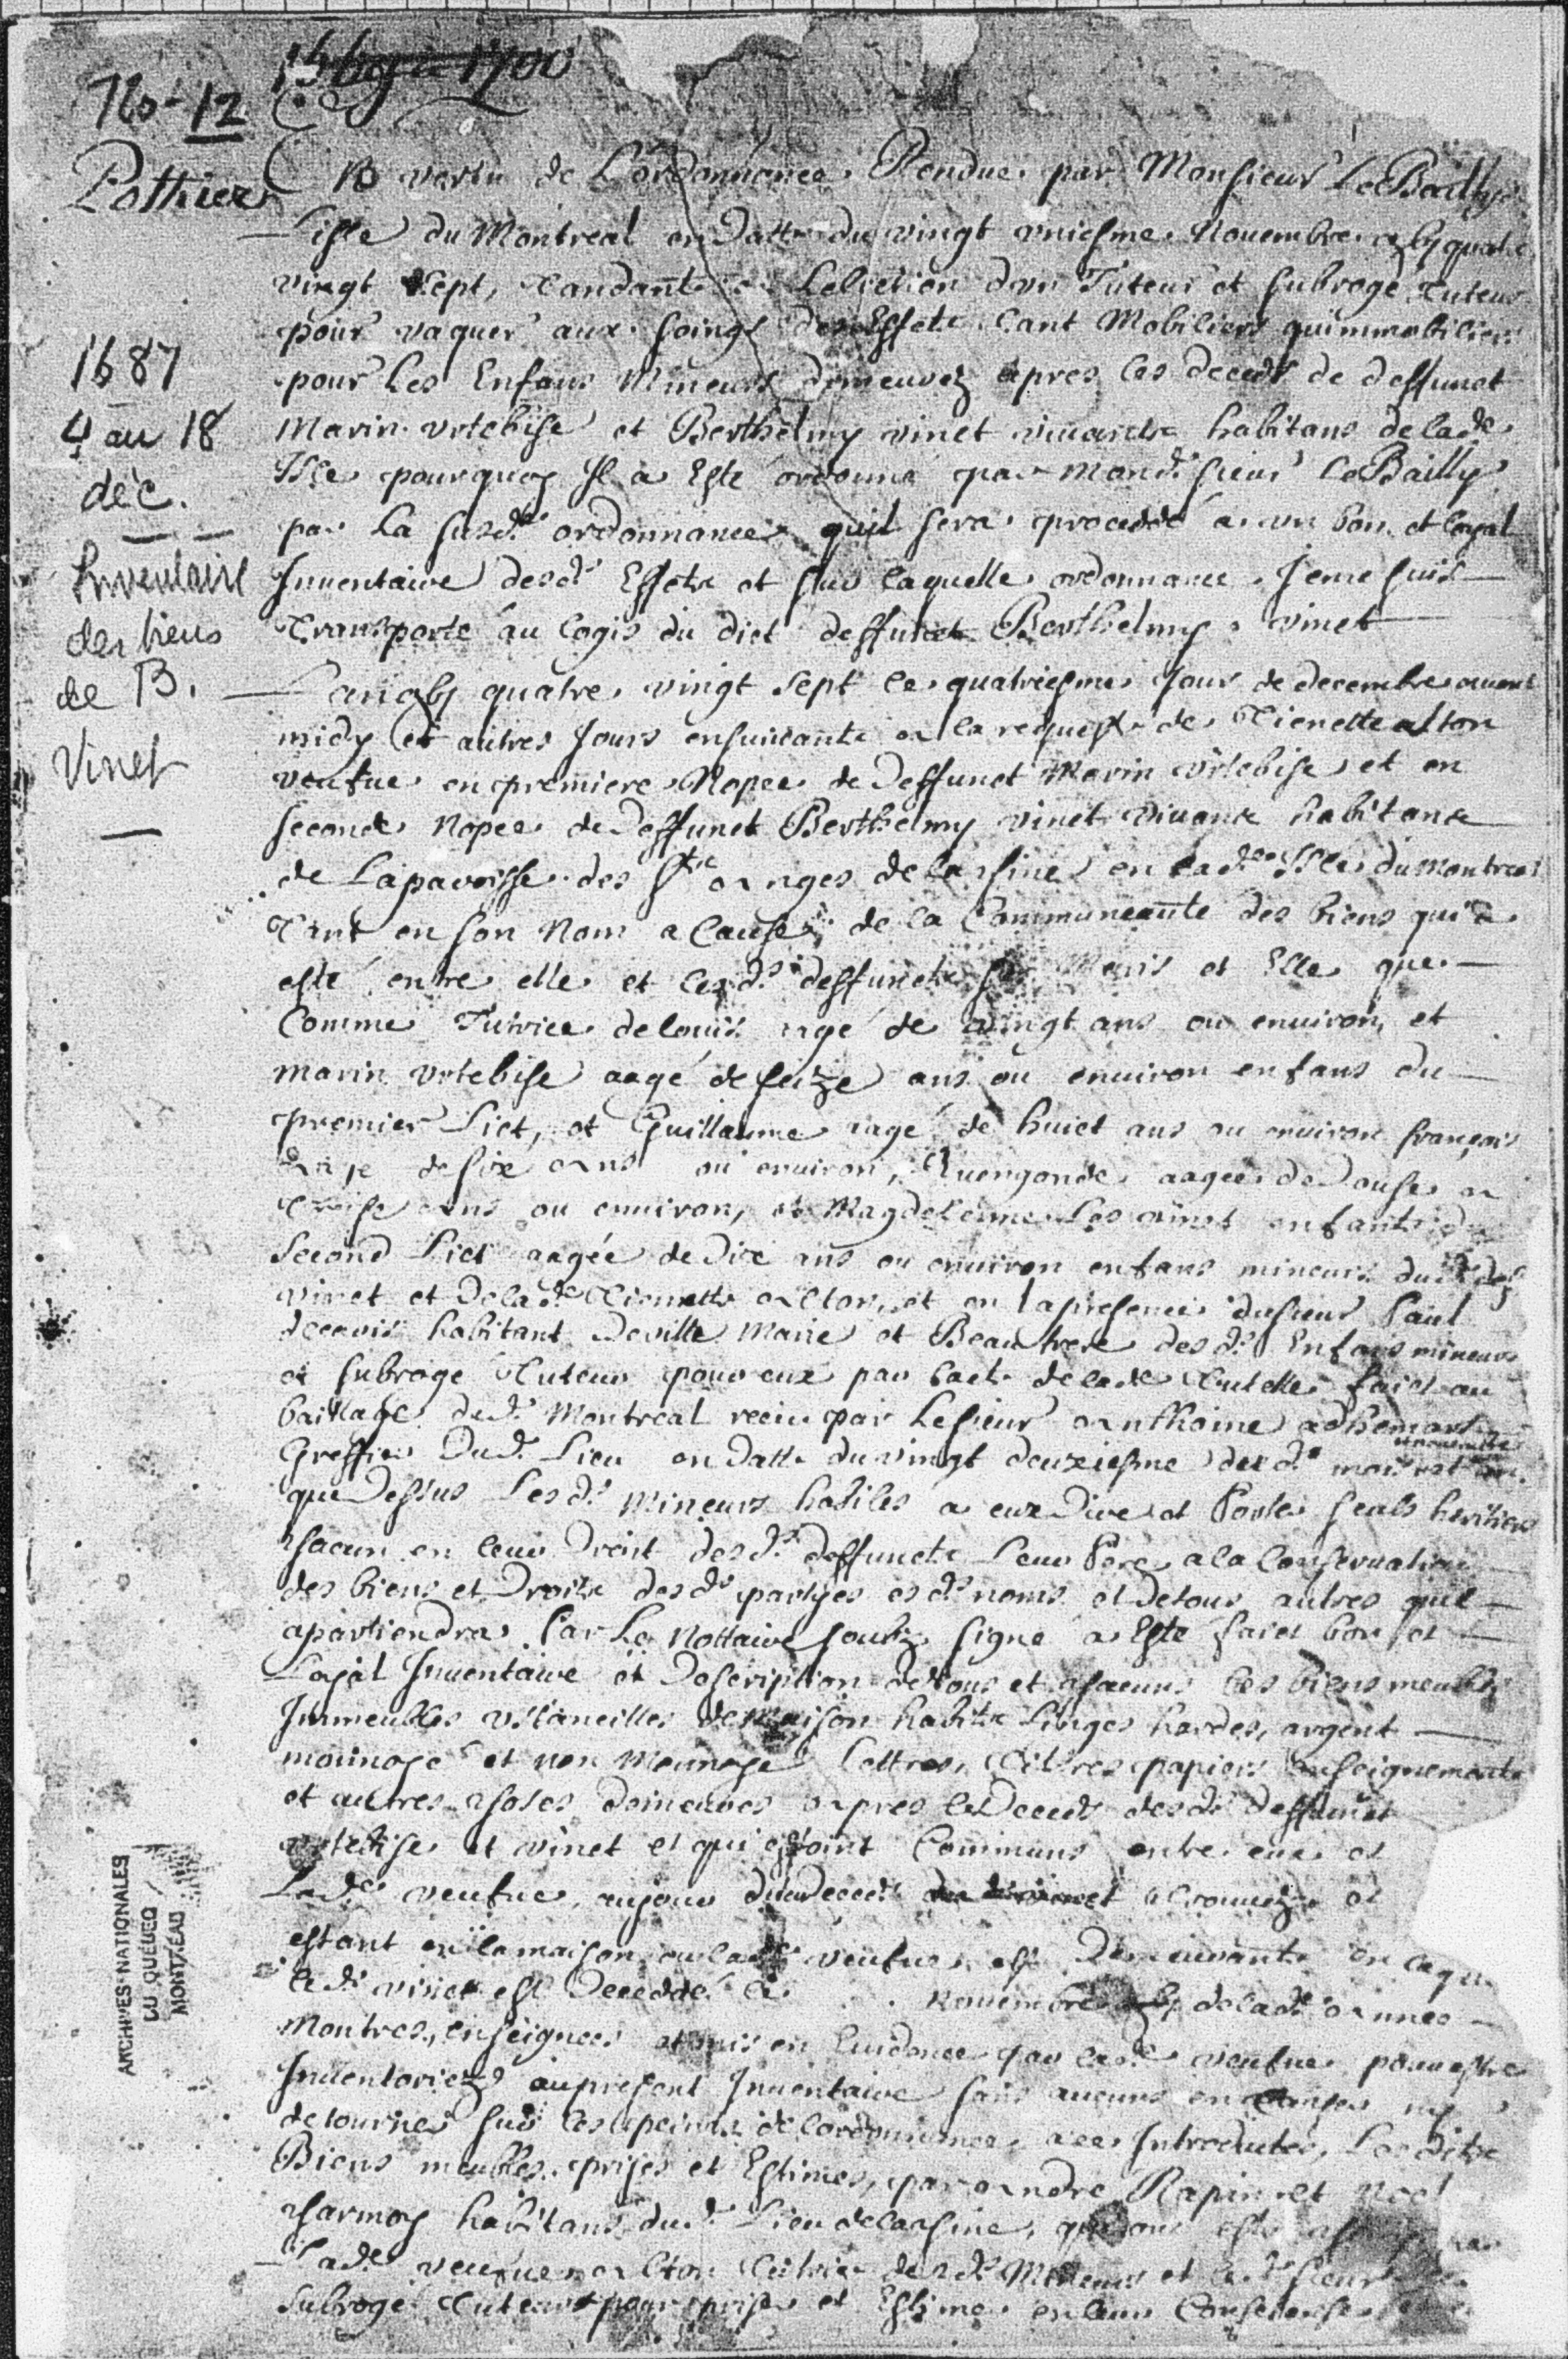 No-12
Pothier
1687
4 au 18
déc.
Inventaire
des biens
de B.
Vinet
En vertu de L'ordonnance Rendue par Monsieur Le Bailly
Lisle du Montreal en Datte du vingt vniesme Nouembre quatre
vingt sept, Tandante a Lelretion d'un Tuteur et subrogé Tuteur
pour vaquer aux soings des Effets tant Mobiliers qu'immobiliers
pour Les Enfans Mineurs demeurez apres les deceds de deffunct
Marin vrtebise et Berthelmy vinet viuants habitans de lad.e
Isle pourquoy Il a Esté ordonné par mond.t sieur Le Bailly
par La susd.te ordonnance quil sera proceddé a un bon et loyal
Inuentaire desd.s Effets et sur laquelle ordonnance Je me suis
Transporté au logis du dict deffunct Berthelmy vinet
Lan quatre vingt sept le quatriesme Jour de decembre auant
midy et autres Jours ensuiuants a la requeste de Tienette alton
veufue en premiere Nopce de Deffunct Marin vrtebise et en
seconde Nopce de Deffunct Berthelmy vinet viuans habitans
de La paroisse des S.ts anges de la sine en lad.e Isle du Montreal
Tant en son Nom a Cause de la Communeauté des biens qui a
esté entre elle et lesd.s deffuncts ses Maris et Elle que
Comme Tutrice de louis agé de vingt ans ou enuiron, et
marin vrtebise aagé de seize ans ou enuiron enfans du
premier Lict, et Guillaume aagé de huict ans ou enuiron françois
agé de six ans ou enuiron, Cunegonde aagée de Douse a
Treise ans ou enuiron, et Magdeleinne Les vinet enfants du
Second Lict aagée de Dix ans ou enuiron enfans mineurs dud.t def
vinet et de lad.e Tienette alton, et en la presence du sieur Paul
decaris habitant de ville Marie et Beau frere desd.s Enfans mineurs
et subrogé Tuteur pour eux par l'acte de lad.e Tutelle faict au
bailliage dud.t Montreal receu par Le sieur anthoine adhemart
Greffier Dud.t Lieu en Datte du vingt deuxiesme desd.s mois et an
que Dessus Lesd.s Mineurs habiles a eux Dire et Porter seuls heritiers
chacun en leur Droit desd.s deffuncts Leur Pere a la Conseruation
des biens et Droits desd.s partyes esd.s noms et De tous autres quil
apartiendra Par Le Nottaire soubz signé a Esté faict bon et
Loyal Inuentaire et Description de tous et chacuns les biens meubles
Immeubles vstancilles de Maison habits Linges hardes, argent
monnoyé et non Monnoyé Lettres, Tiltres papiers enseignements
et autres choses demeures apres le Deceds desd.s deffunct
vrtebise et vinet et qui estoint Communs entre eux et
Lad.e veufue, au jour dud. Deceds trouuez et
estant en la maison ou lad.e veufue est Demeurante en laqu
led.t vinet est Deceddé le nouembre de lad.e année
Montres, enseignees et mis en Euidence par lad.e veufue pour estre
Inuentoriez au present Inuentaire sans aucuns en
detourner sur les peines de l'ordonnance a ce Introduites, Les dits
Biens meubles prisés et Estimes, par andre Rapin et Noel
charmoy habitans dud.t Lieu de la chine, qui ont esté
Lad.e veufue alton Tutrice desd.s Mineurs et led.t sieur
Subrogé Tuteur pour priser et Estimer en leur Conscience
ARCHIVES NATIONALES
DU QUÉBEC
MONTRÉAL